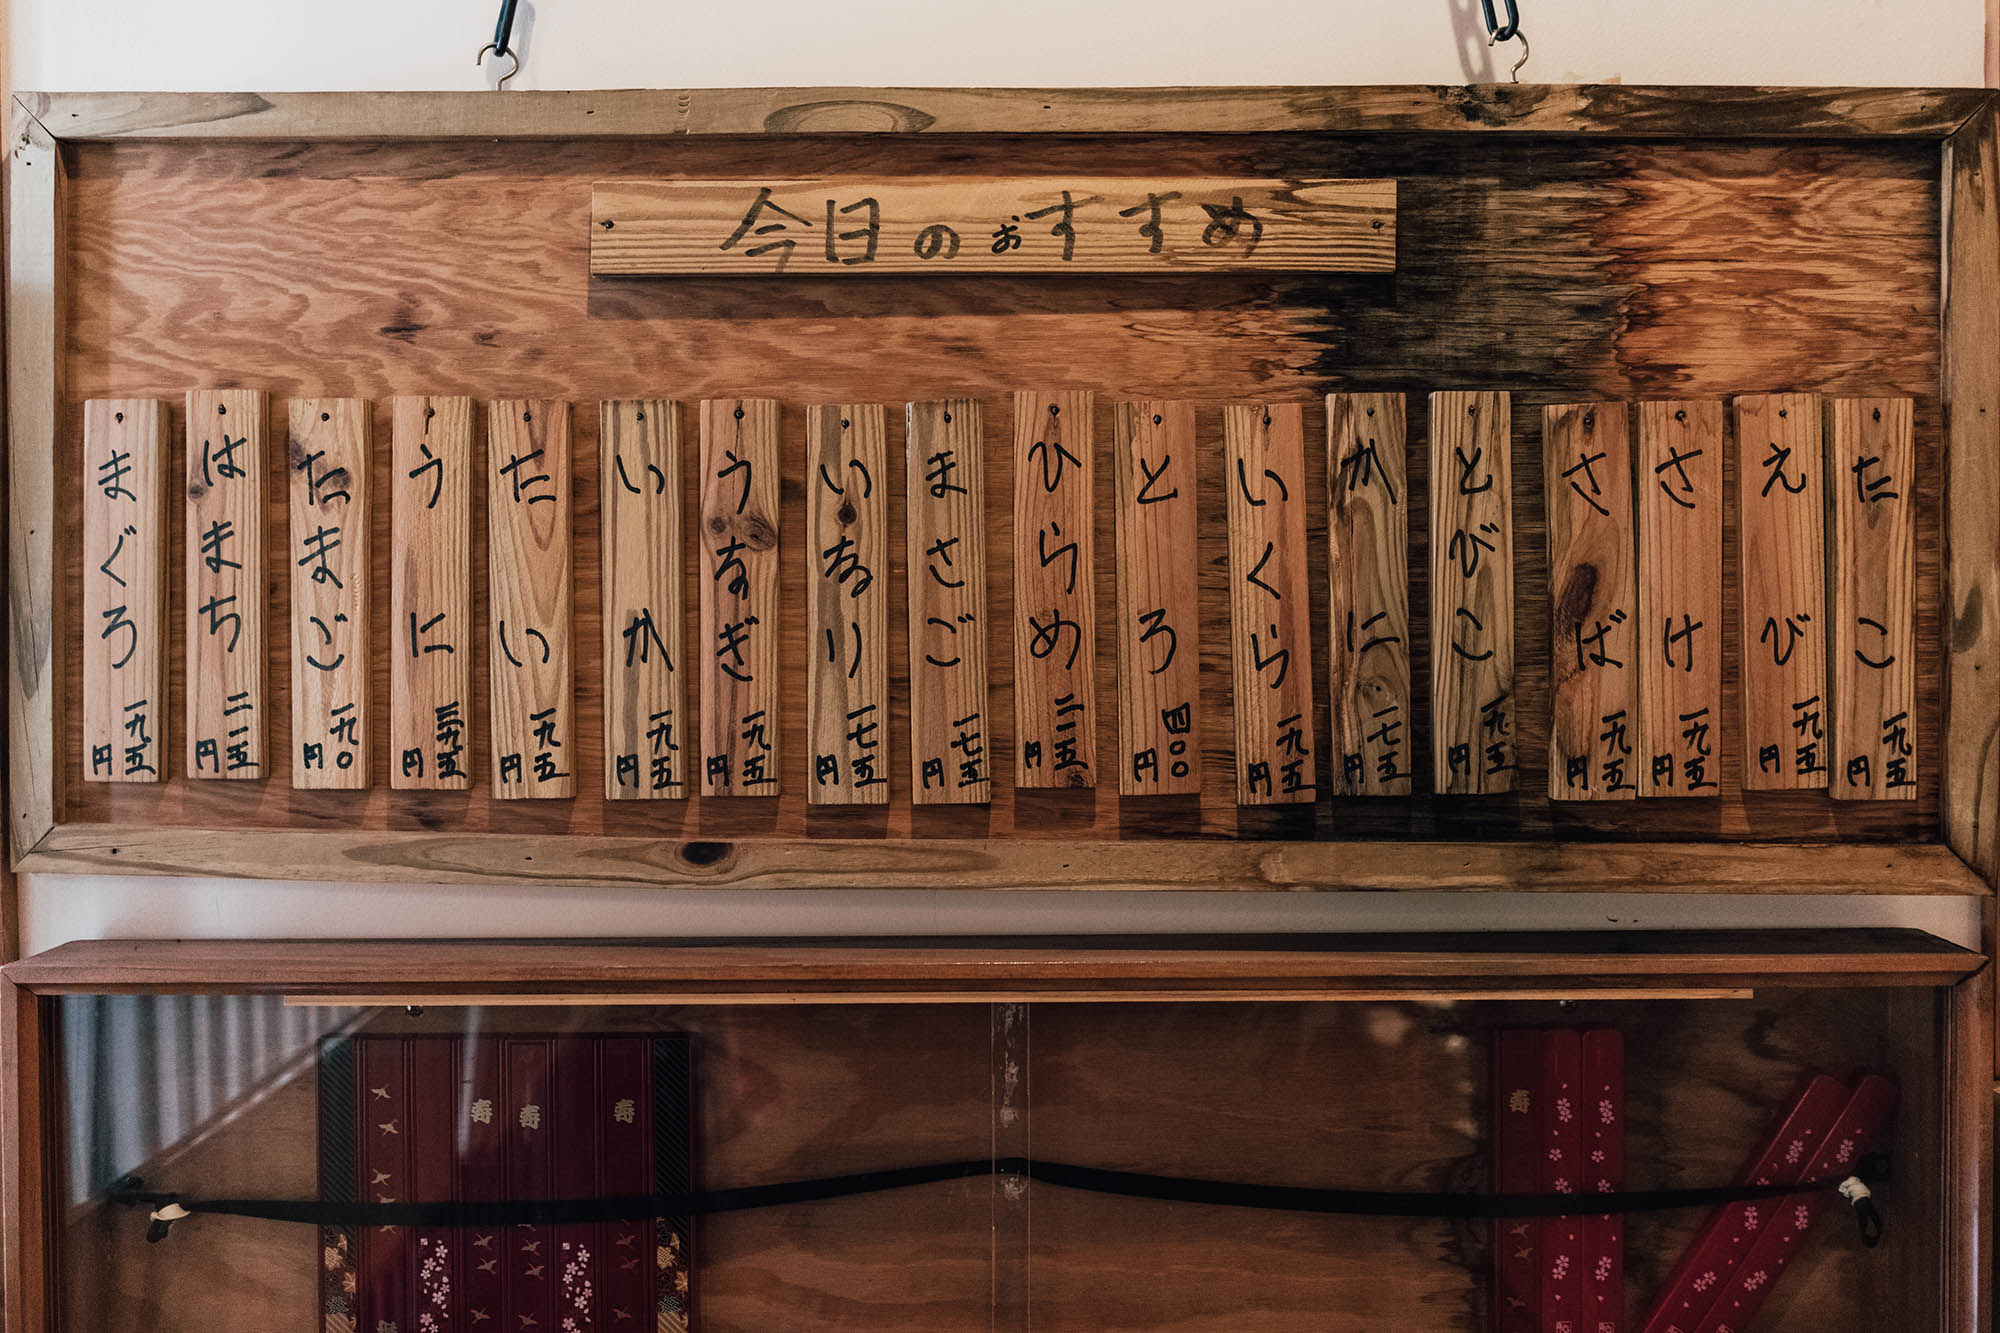 今日のおすすめ
たこ 一九五円
えび 一九五円
さけ 一九五円
さば 一九五円
とびこ 一九五円
かに 一七五円
いくら 一九五円
とろ 四〇〇円
ひらめ 二一五円
まさご 一七五円
いなり 一七五円
うなぎ 一九五円
いか 一九五円
たい 一九五円
うに 三九五円
たまご 一九〇円
はまち 二一五円
まぐろ 一九五円
寿
寿
寿
寿